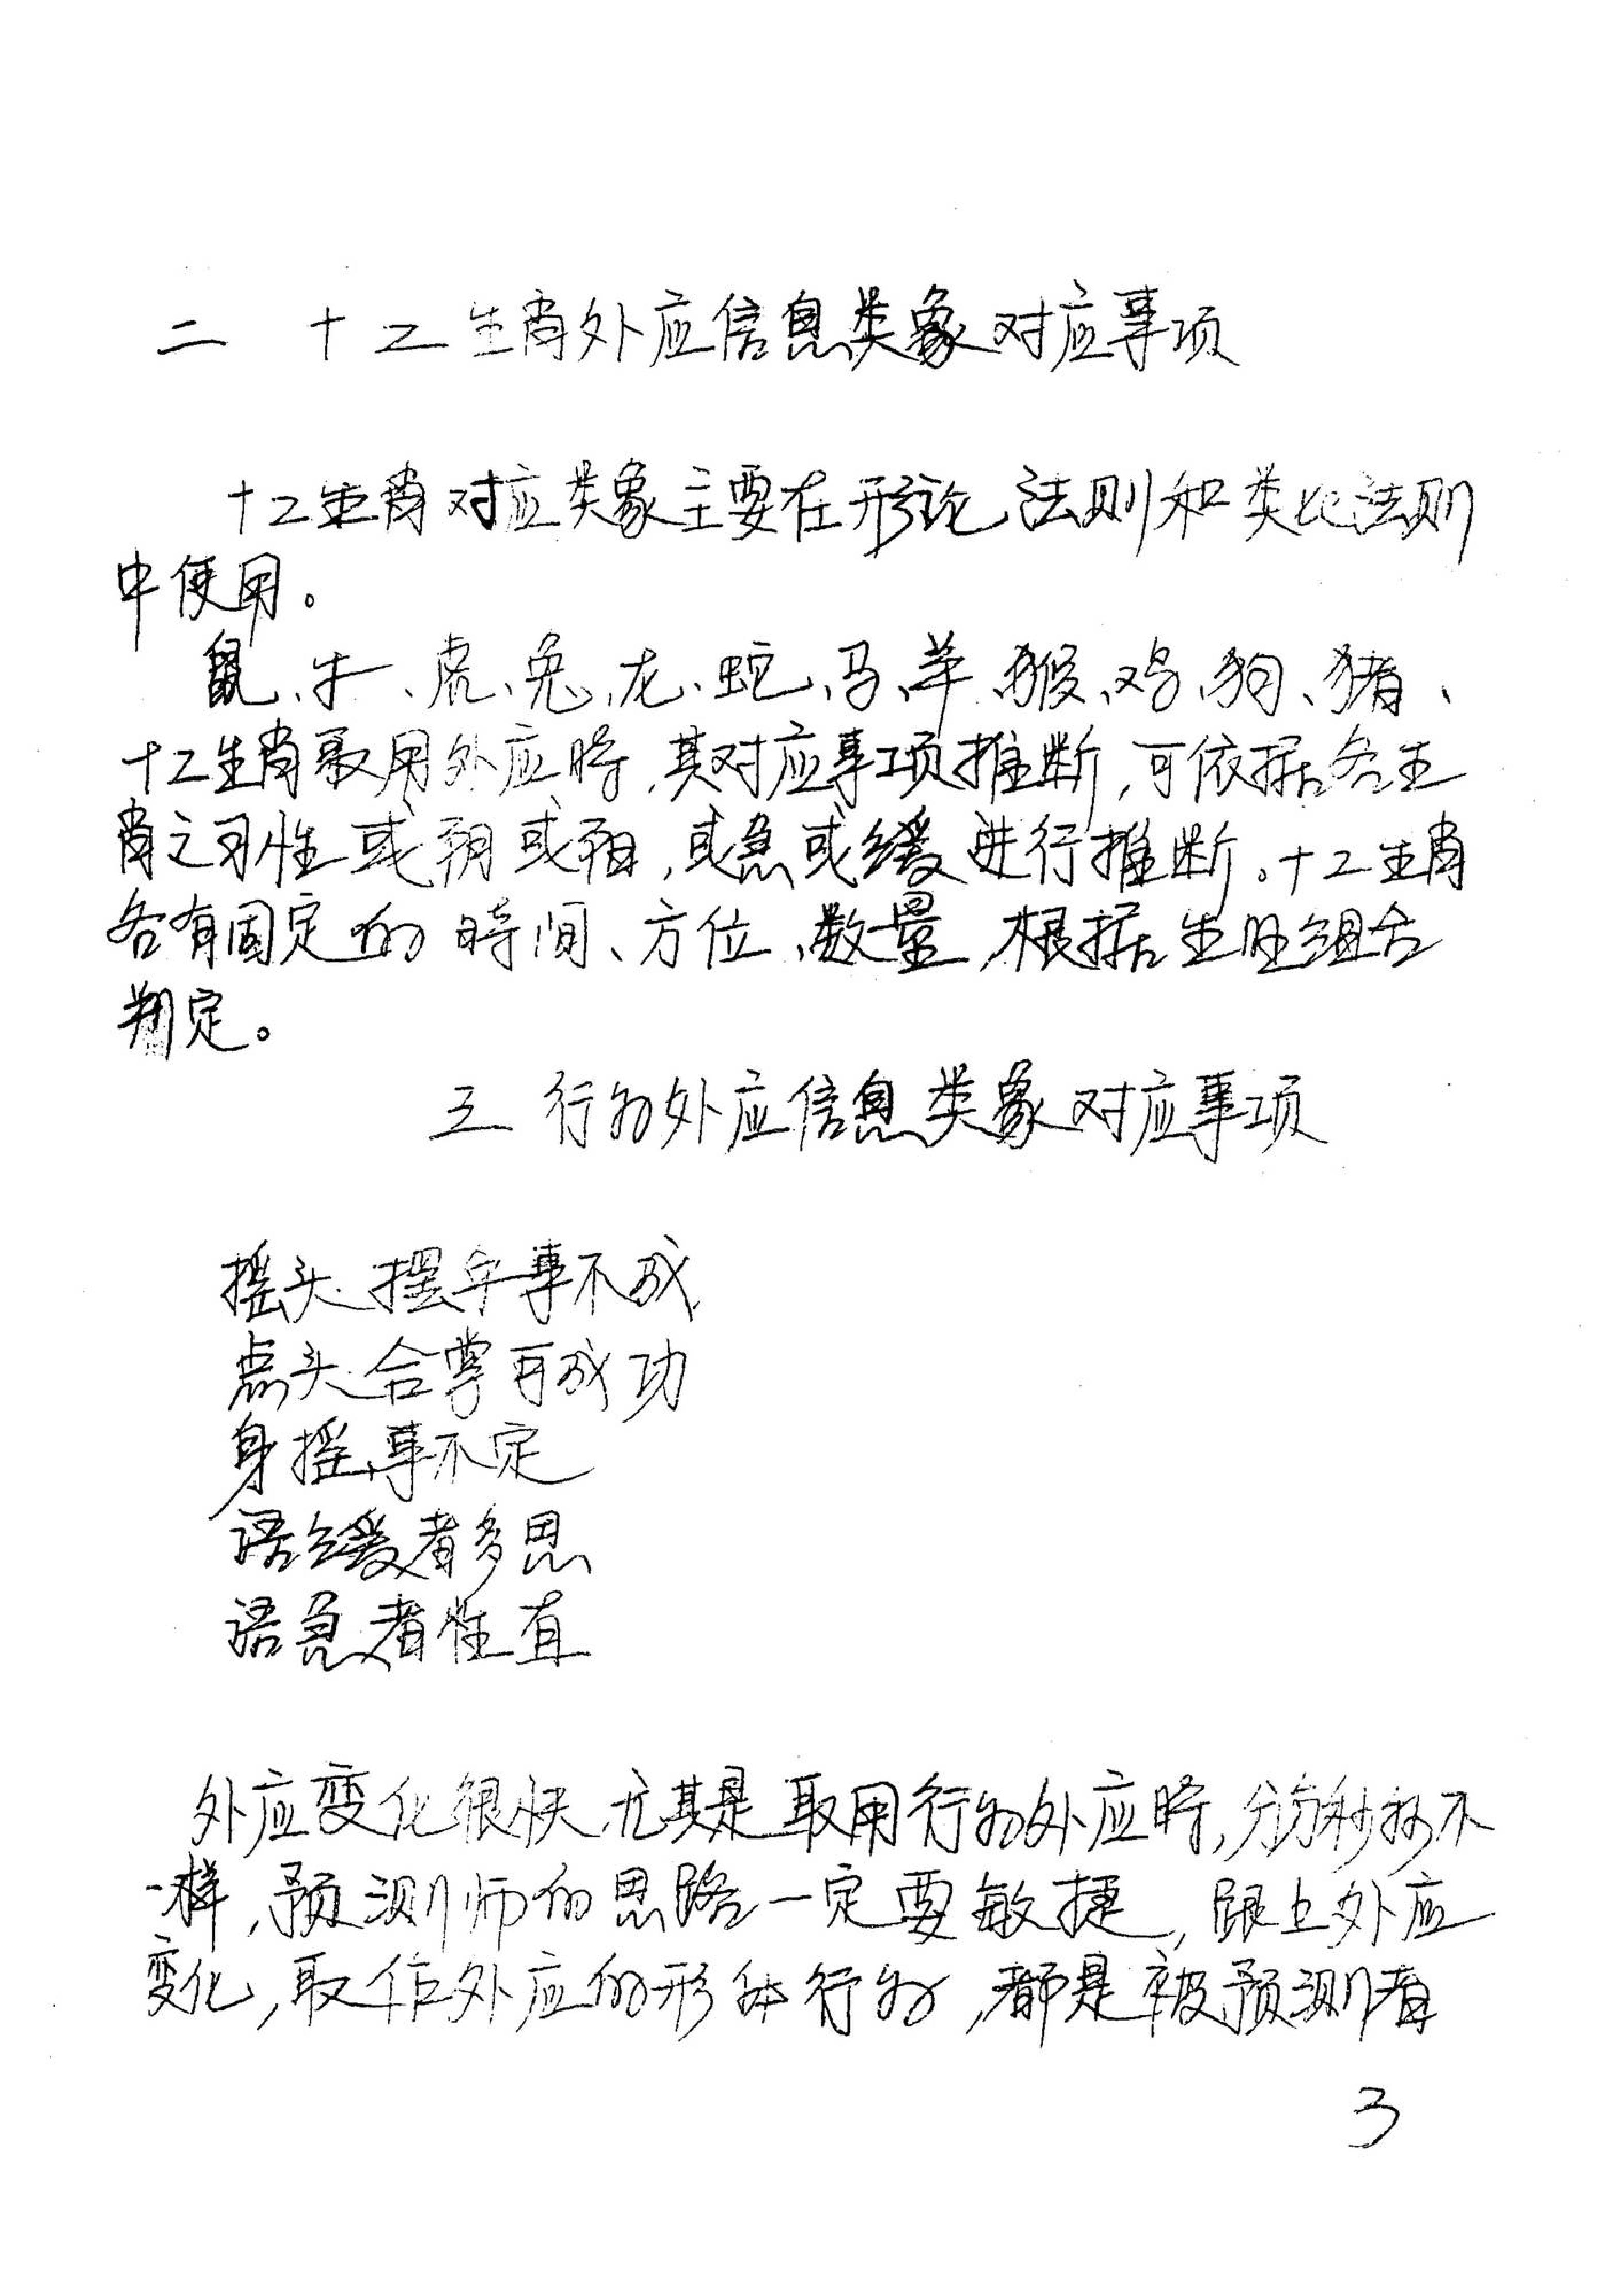 二 十二生肖外应信息类象对应事项
十二生肖对应类象主要在形论法则和类比法则
中使用。
鼠、牛、虎、兔、龙、蛇、马、羊、猴、鸡、狗、猪、
十二生肖取用外应时,其对应事项推断,可依据各生
肖之习性或刚或柔,或急或缓进行推断。十二生肖
各有固定的时间、方位、数量,根据生旺组合
判定。
三 行为外应信息类象对应事项
摇头、摆手事不成
点头、合掌可成功
身摇,事不定
语缓者多思
语急者性直
外应变化很快,尤其是取用行为外应时,分分秒秒不
一样,预测师的思路一定要敏捷,跟上外应
变化,取作外应的形体行为,都是被预测者
3